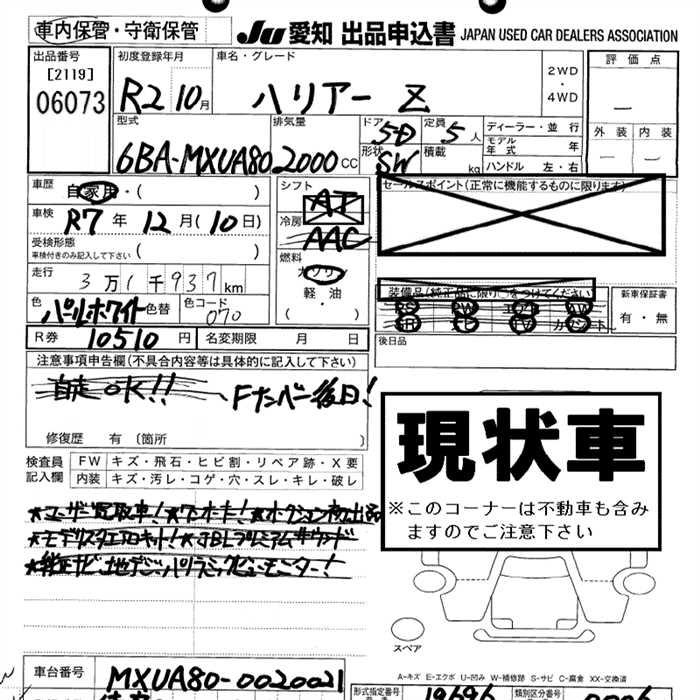 車内保管・守衛保管
JU 愛知 出品申込書 JAPAN USED CAR DEALERS ASSOCIATION
出品番号 [2119] 06073
初度登録年月 R2 10月
車名・グレード ハリアー Z
2WD・4WD
評価点 —
外装 — 内装 —
型式 6BA-MXUA80
排気量 2000 cc
ドア 5D
形状 SW
定員 5人
積載 kg
ディーラー・並行
モデル年式 年
ハンドル 左・右
車歴 自家用・( )
車検 R7年 12月(10日)
受検形態 車検付きのみ記入して下さい ( )
走行 3万1千937km
色 パールホワイト 色替 色コード 070
シフト AT
冷房 AAC
燃料 ガソリン 軽・油 ( )
セールスポイント(正常に機能するものに限ります)
装備品(純正品に限り○をつけてください)
新車保証書 有・無
R券 10510円 名変期限 月 日
後日品
注意事項申告欄(不具合内容等は具体的に記入して下さい)
自走OK!! Fナンバー後日!
修復歴 有 〔箇所
検査員記入欄
FW キズ・飛石・ヒビ割・リペア跡・X要
内装 キズ・汚レ・コゲ・穴・スレ・キレ・破レ
現状車
※このコーナーは不動車も含みますのでご注意下さい
★ユーザー買取車!★ワンオーナー!★オークション初出品
★モデリスタエアロキット!★JBLプレミアムサウンド
★純正ナビ地デジパノラミックビューモニター!
スペア
A-キズ E-エクボ U-凹み W-補修跡 S-サビ C-腐食 XX-交換済
車台番号 MXUA80-0020021
形式指定番号 19696
類別区分番号